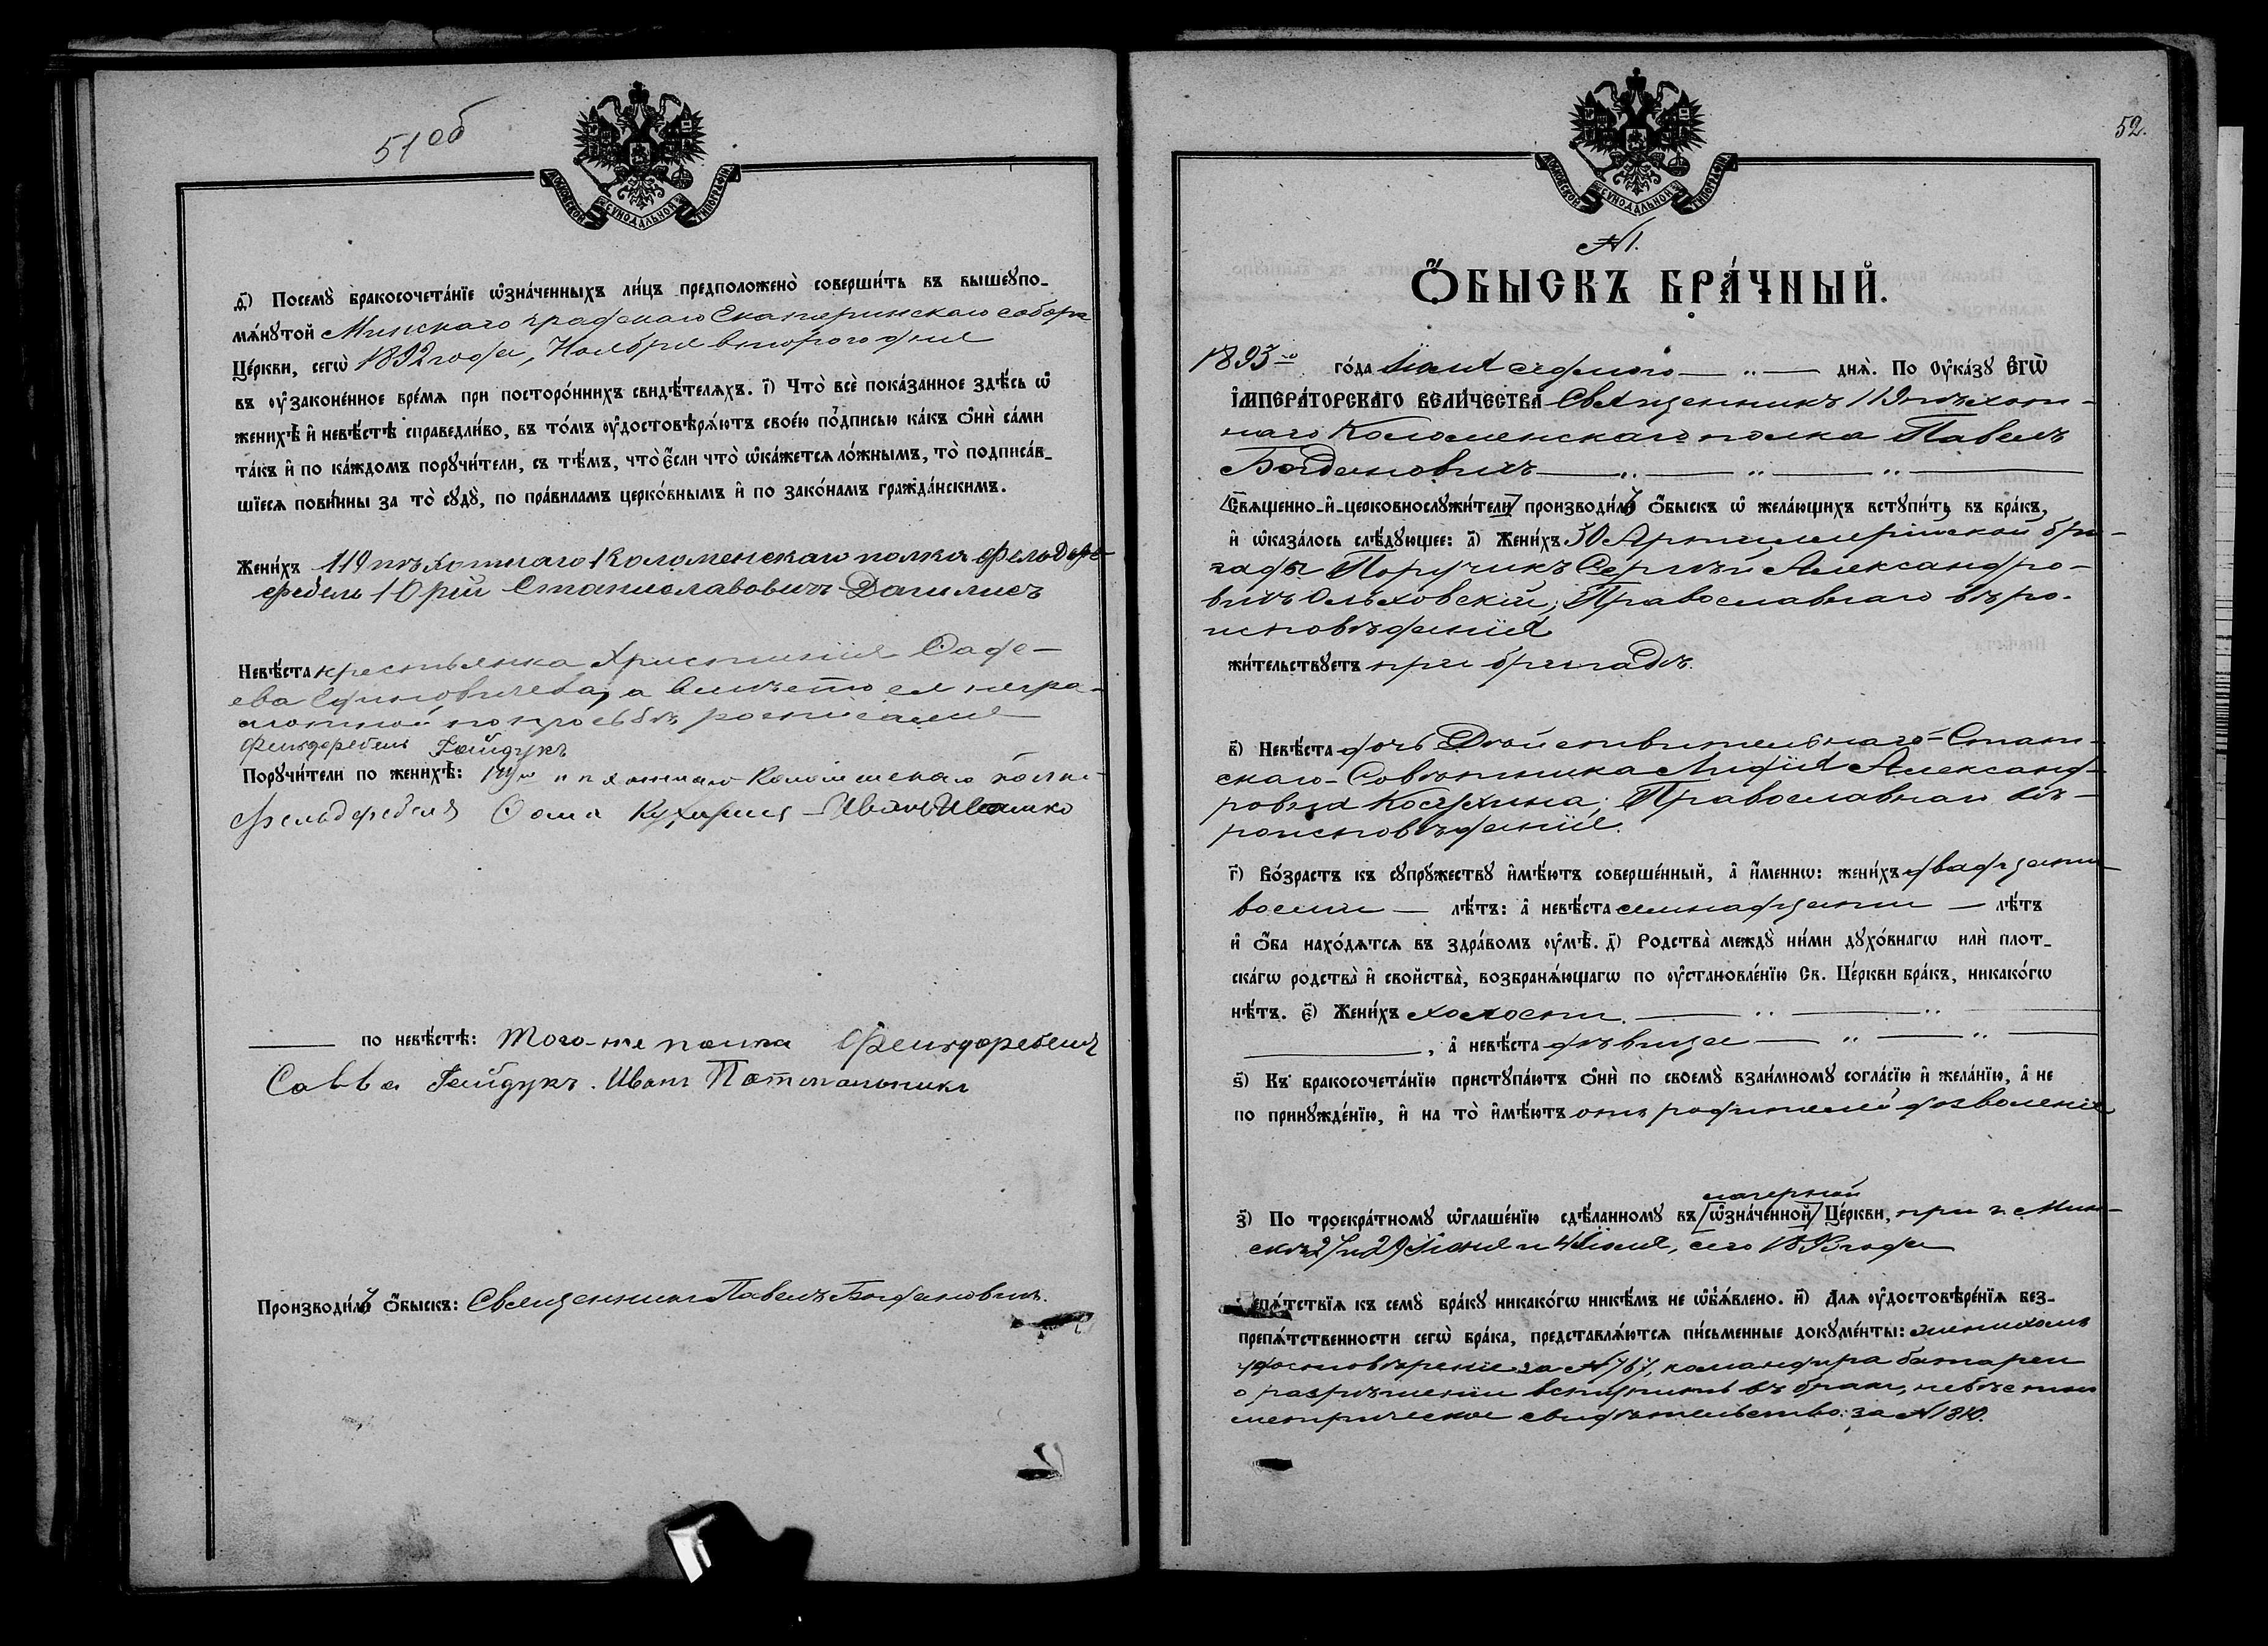 51 об
МОСКОВСКОЙ СѴНОДАЛЬНОЙ ТИПОГРАФІИ
Ѳ҃) Посемꙋ̀ бракосочета́нїе ѡ҆зна́ченныхъ ли́цъ предположено̀ соверши́ть въ вышеꙋпо-
мѧ́нꙋтой Минскаго градскаго Екатерининскаго собора
Це́ркви, сегѡ̀ 1892 года, Ноября втораго дня
въ ᲂу҆законе́нное вре́мѧ при посторо́ннихъ свидѣ́телѧхъ. і҃) Что̀ всѐ пока́занное здѣ́сь ѡ҆
женихѣ̀ и҆ невѣ́стѣ справедли́во, въ то́мъ ᲂу҆достовѣрѧ́ютъ свое́ю по́дписью ка́къ ѻ҆нѝ са́ми
та́къ и҆ по ка́ждомъ порꙋчи́тели, съ тѣ́мъ, что̀ є҆́сли что̀ ѡ҆ка́жетсѧ ло́жнымъ, то̀ подписа́в-
шїесѧ пови́нны за то̀ сꙋдꙋ̀, по пра́виламъ церко́внымъ и҆ по зако́намъ гражда́нскимъ.
Жени́хъ 119 пѣхотнаго Коломенскаго полка фельдфе-
фебель Юрій Станиславовичъ Данилисъ
Невѣ́ста крестьянка Христинія Фаде-
ева, а вместо ея негра-
мотной по просьбѣ росписался
Фельдфебель Гайдукъ
Порꙋчи́тели по женихѣ̀: 119го пехотнаго Коломенскаго полка
фельдфебеля Фома Кухарчик Иванъ Ивашко
по невѣ́стѣ: Того-же полка Фельдфебеля
Савва Гайдукъ. Иванъ
Производи́лъ Ѻ҆́быскъ: Священникъ Павелъ Богдановичъ.
52.
МОСКОВСКОЙ СѴНОДАЛЬНОЙ ТИПОГРАФІИ
№ 1.
Ѻ҆́БЫСКЪ БРА́ЧНЫЙ.
1893го го́да Іюля седьмого днѧ̀. По Оу҆ка́зꙋ Є҆ГѠ̀
І҆МПЕРА́ТОРСКАГО ВЕЛИ́ЧЕСТВА Священникъ 119 пѣхот-
наго Коломенскаго полка Павелъ
Богдановичъ
Свѧще́нно-и҆-церковнослꙋжи́тели производи́лъ Ѻ҆́быскъ ѡ҆ жела́ющихъ вступи́ть въ бра́къ,
и҆ ѡ҆каза́лось слѣ́дꙋющее: а҃) Жени́хъ 30 Артиллерійской бри-
гады Поручикъ Сергѣй Александро-
вичъ Ольховскій; Православнаго вѣро-
исповѣданія
жи́тельствꙋетъ при бригадѣ.
в҃) Невѣ́ста дочь Дѣйствительнаго-Стат-
скаго-Совѣтника Лидія Александ-
ровна; Православнаго вѣ-
роисповѣданія.
г҃) Во́зрастъ къ сꙋпрꙋ́жествꙋ и҆мѣ́ютъ соверше́нный, а҆ и҆́меннѡ: жени́хъ двадцати
восьми лѣ́тъ: а҆ невѣ́ста семнадцати лѣ́тъ
и҆ ѻ҆́ба нахо́дѧтсѧ въ здра́вомъ ᲂу҆мѣ̀. д҃) Родства̀ междꙋ̀ ни́ми дꙋхо́внагѡ и҆лѝ плот-
ска́гѡ родства̀ и҆ свойства̀, возбранѧ́ющагѡ по ᲂу҆становле́нїю Св. Це́ркви бра́къ, никако́гѡ
нѣ́тъ. є҃) Жени́хъ холостъ.
, а҆ невѣ́ста дѣвица
ѕ҃) Къ бракосочета́нїю пристꙋпа́ютъ ѻ҆нѝ по своемꙋ̀ взаи́мномꙋ согла́сїю и҆ жела́нїю, а҆ не
по принꙋжде́нїю, и҆ на то̀ и҆мѣ́ютъ отъ родителей дозволеніе
лагерной
з҃) По троекра́тномꙋ ѡ҆глаше́нїю сдѣ́ланномꙋ въ ѡ҆зна́ченной Це́ркви, при г. Мин-
скѣ 27 и 29 Іюня и 4 Іюля, сего 1893 года
епѧ́тствїѧ къ семꙋ̀ бра́кꙋ никако́гѡ никѣ́мъ не ѡ҆б̾ѧ́влено. и҃) Длѧ ᲂу҆достовѣре́нїѧ без-
препѧ́тственности сегѡ̀ бра́ка, представлѧ́ютсѧ пи́сьменные докꙋме́нты: женихомъ
удостовѣреніе за № 767, командира батареи
о разрѣшеніи вступить въ бракъ, невѣстою
метрическое свидѣтельство: за №